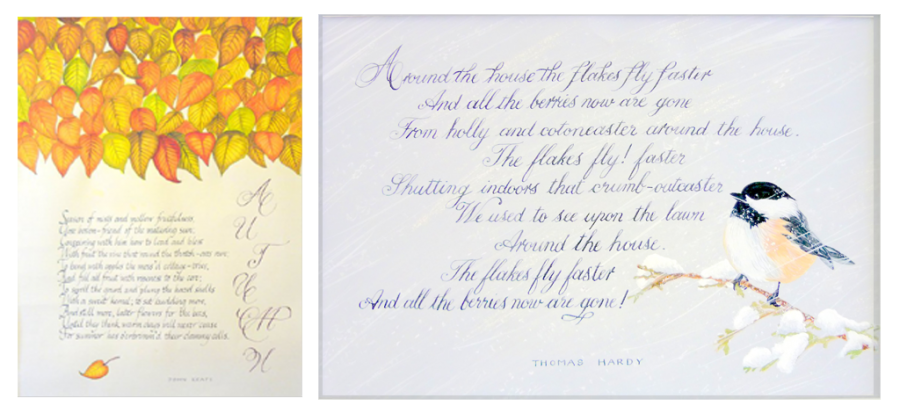 Season of mists and mellow fruitfulness,
Close bosom-friend of the maturing sun,
Conspiring with him how to load and bless
With fruit the vine that round the thatch-eves run;
To bend with apples the moss'd cottage-trees,
And fill all fruit with ripeness to the core;
To swell the gourd and plump the hazel shells
With a sweet kernel; to set budding more,
And still more, later flowers for the bees,
Until they think warm days will never cease
For summer has o'erbrimm'd their clammy cells.
AUTUMN
JOHN KEATS
Around the house the flakes fly faster
And all the berries now are gone
From holly and cotoneaster around the house.
The flakes fly! faster
Shutting indoors that crumb-outcaster
We used to see upon the lawn
Around the house.
The flakes fly faster
And all the berries now are gone!
THOMAS HARDY